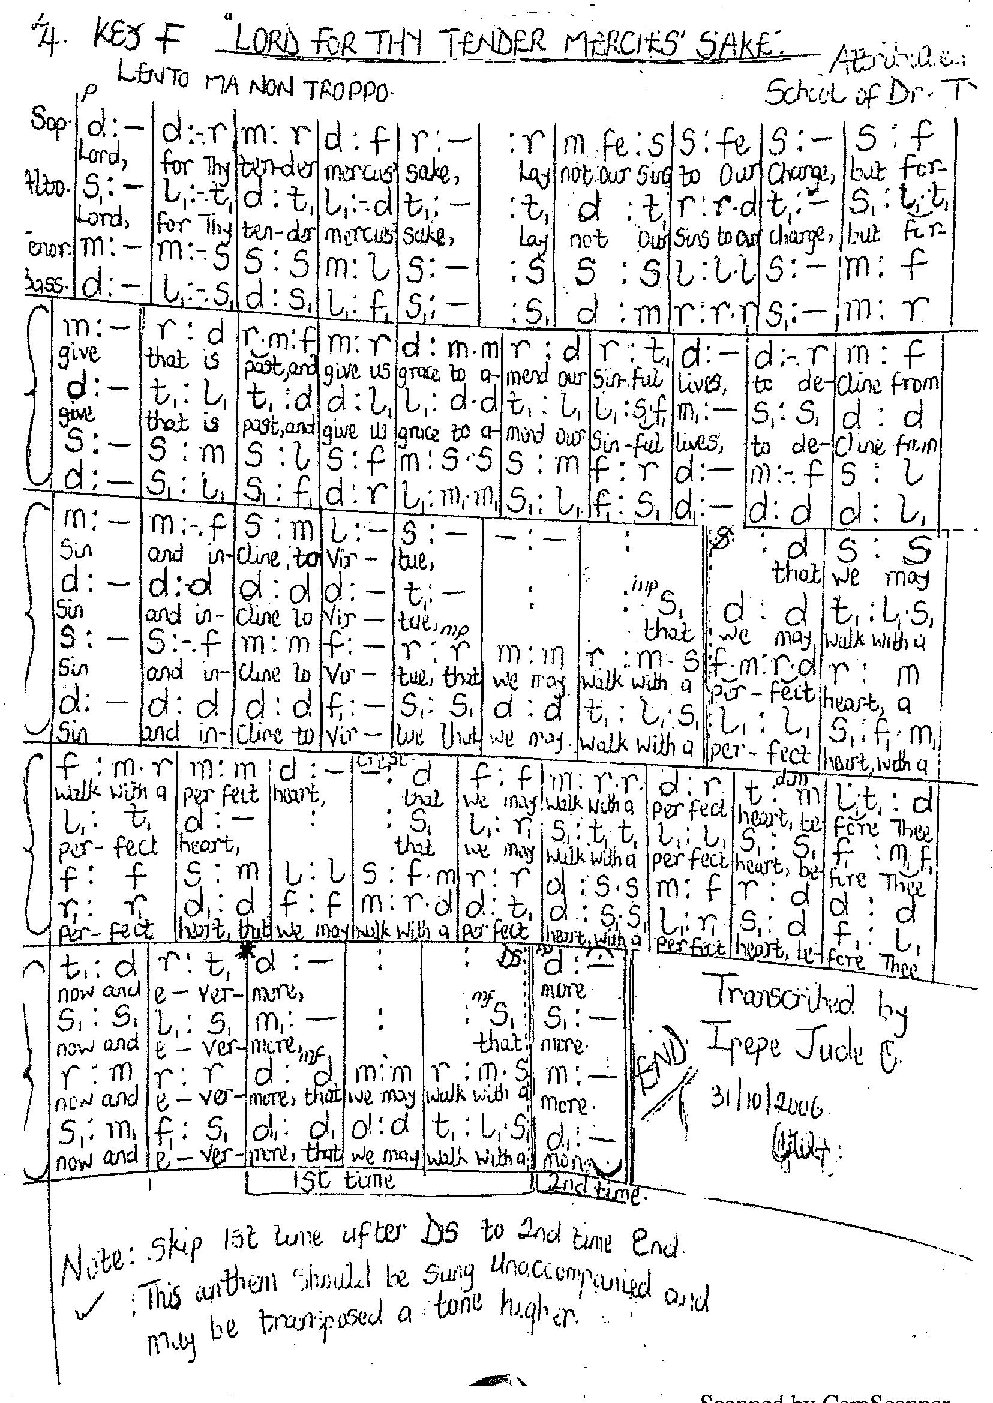 KEY F "LORD FOR THY TENDER MERCIES' SAKE."
LENTO MA NON TROPPO.
School of Dr. T
p
Sop. d:– | d:-r | m:r | d:f | r:– | :r | m fe:s | s:fe | s:– | s:f
Lord, for Thy ten-der mercies' sake, Lay not our Sins to Our Charge, but for-
Alto. s:– | l:-t, | d:t, | l,:-d | t,:– | :t, | d:t, | r:r.d | t,:– | s,:l,.t,
Lord, for Thy ten-der mercies' sake, Lay not Our Sins to our charge, but for-
enor. m:– | m:-s | s:s | m:l | s:– | :s | s:s | l:l.l | s:– | m:f
bass. d:– | l,:-s, | d:s, | l,:f, | s,:– | :s, | d:m | r:r.r | s,:– | m:r
m:– | r:d | r.m:f | m:r | d:m.m | r:d | r:t, | d:– | d:-r | m:f
give that is past, and give us grace to a- mend our Sin-ful lives, to de- cline from
d:– | t,:l, | t,:d | d:l, | l,:d.d | t,:l, | l,:s,f, | m,:– | s,:s, | d:d
give that is past, and give us grace to a- mend our Sin-ful lives, to de- Cline from
s:– | s:m | s:l | s:f | m:s.s | s:m | f:r | d:– | m:-f | s:l
d:– | s,:l, | s,:f, | d:r | l,:m,.m, | s,:l, | f,:s, | d:– | d:d | d:l,
m:– | m:-f | s:m | l:– | s:– | –:– | : | :d | s:s
Sin and in- Cline to Vir- tue, that we may
d:– | d:d | d:d | d:– | t,:– | : | mp :s, | d:d | t,:l,.s,
Sin and in- Cline to Vir- tue, that we may walk with a
s:– | s:-f | m:m | f:– | mp r:r | m:m | r:m.s | f.m:r.d | r:m
Sin and in- Cline to Vir- tue, that we may walk with a per-fect heart, a
d:– | d:d | d:d | f,:– | s,:s, | d:d | t,:l,.s, | l,:l, | s,:f,.m,
Sin and in- Cline to Vir- tue that we may walk with a per-fect heart, with a
f:m.r | m:m | d:– | –:d | f:f | m:r.r | d:r | t,:m | l,.t,:d
walk with a perfect heart, that we may walk with a perfect heart, be fore Thee
l,:t, | d:– | : | :s, | l,:r, | s,:t,.t, | l,:l, | s,:s, | f,:m,.f,
per-fect heart, that we may walk with a perfect heart, be- fore Thee
f:f | s:m | l:l | s:f.m | r:r | d:s.s | m:f | r:d | d:d
r,:r, | d,:d | f:f | m:r.d | d:t, | d:s,.s, | l,:r, | s,:d | f,:l,
per-fect heart, that we may walk with a perfect heart, with a perfect heart, be- fore Thee
t,:d | r:t, | * d:– | : | : DS | d:–
now and e-ver- more, more
s,:s, | l,:s, | m,:– | : | mf :s, | s,:–
now and e-ver- more, that more.
r:m | r:r | d:d | m:m | r:m.s | m:–
now and e-ver- more, that we may walk with a more.
s,:m, | f,:s, | d,:d, | d:d | t,:l,.s, | d,:–
now and e-ver- more, that we may walk with a more.
1st time 2nd time.
END
Transcribed by
Irepe Jude C
31/10/2006
Note: Skip 1st time after DS to 2nd time End.
: This anthem should be sung Unaccompanied and
may be transposed a tone higher.